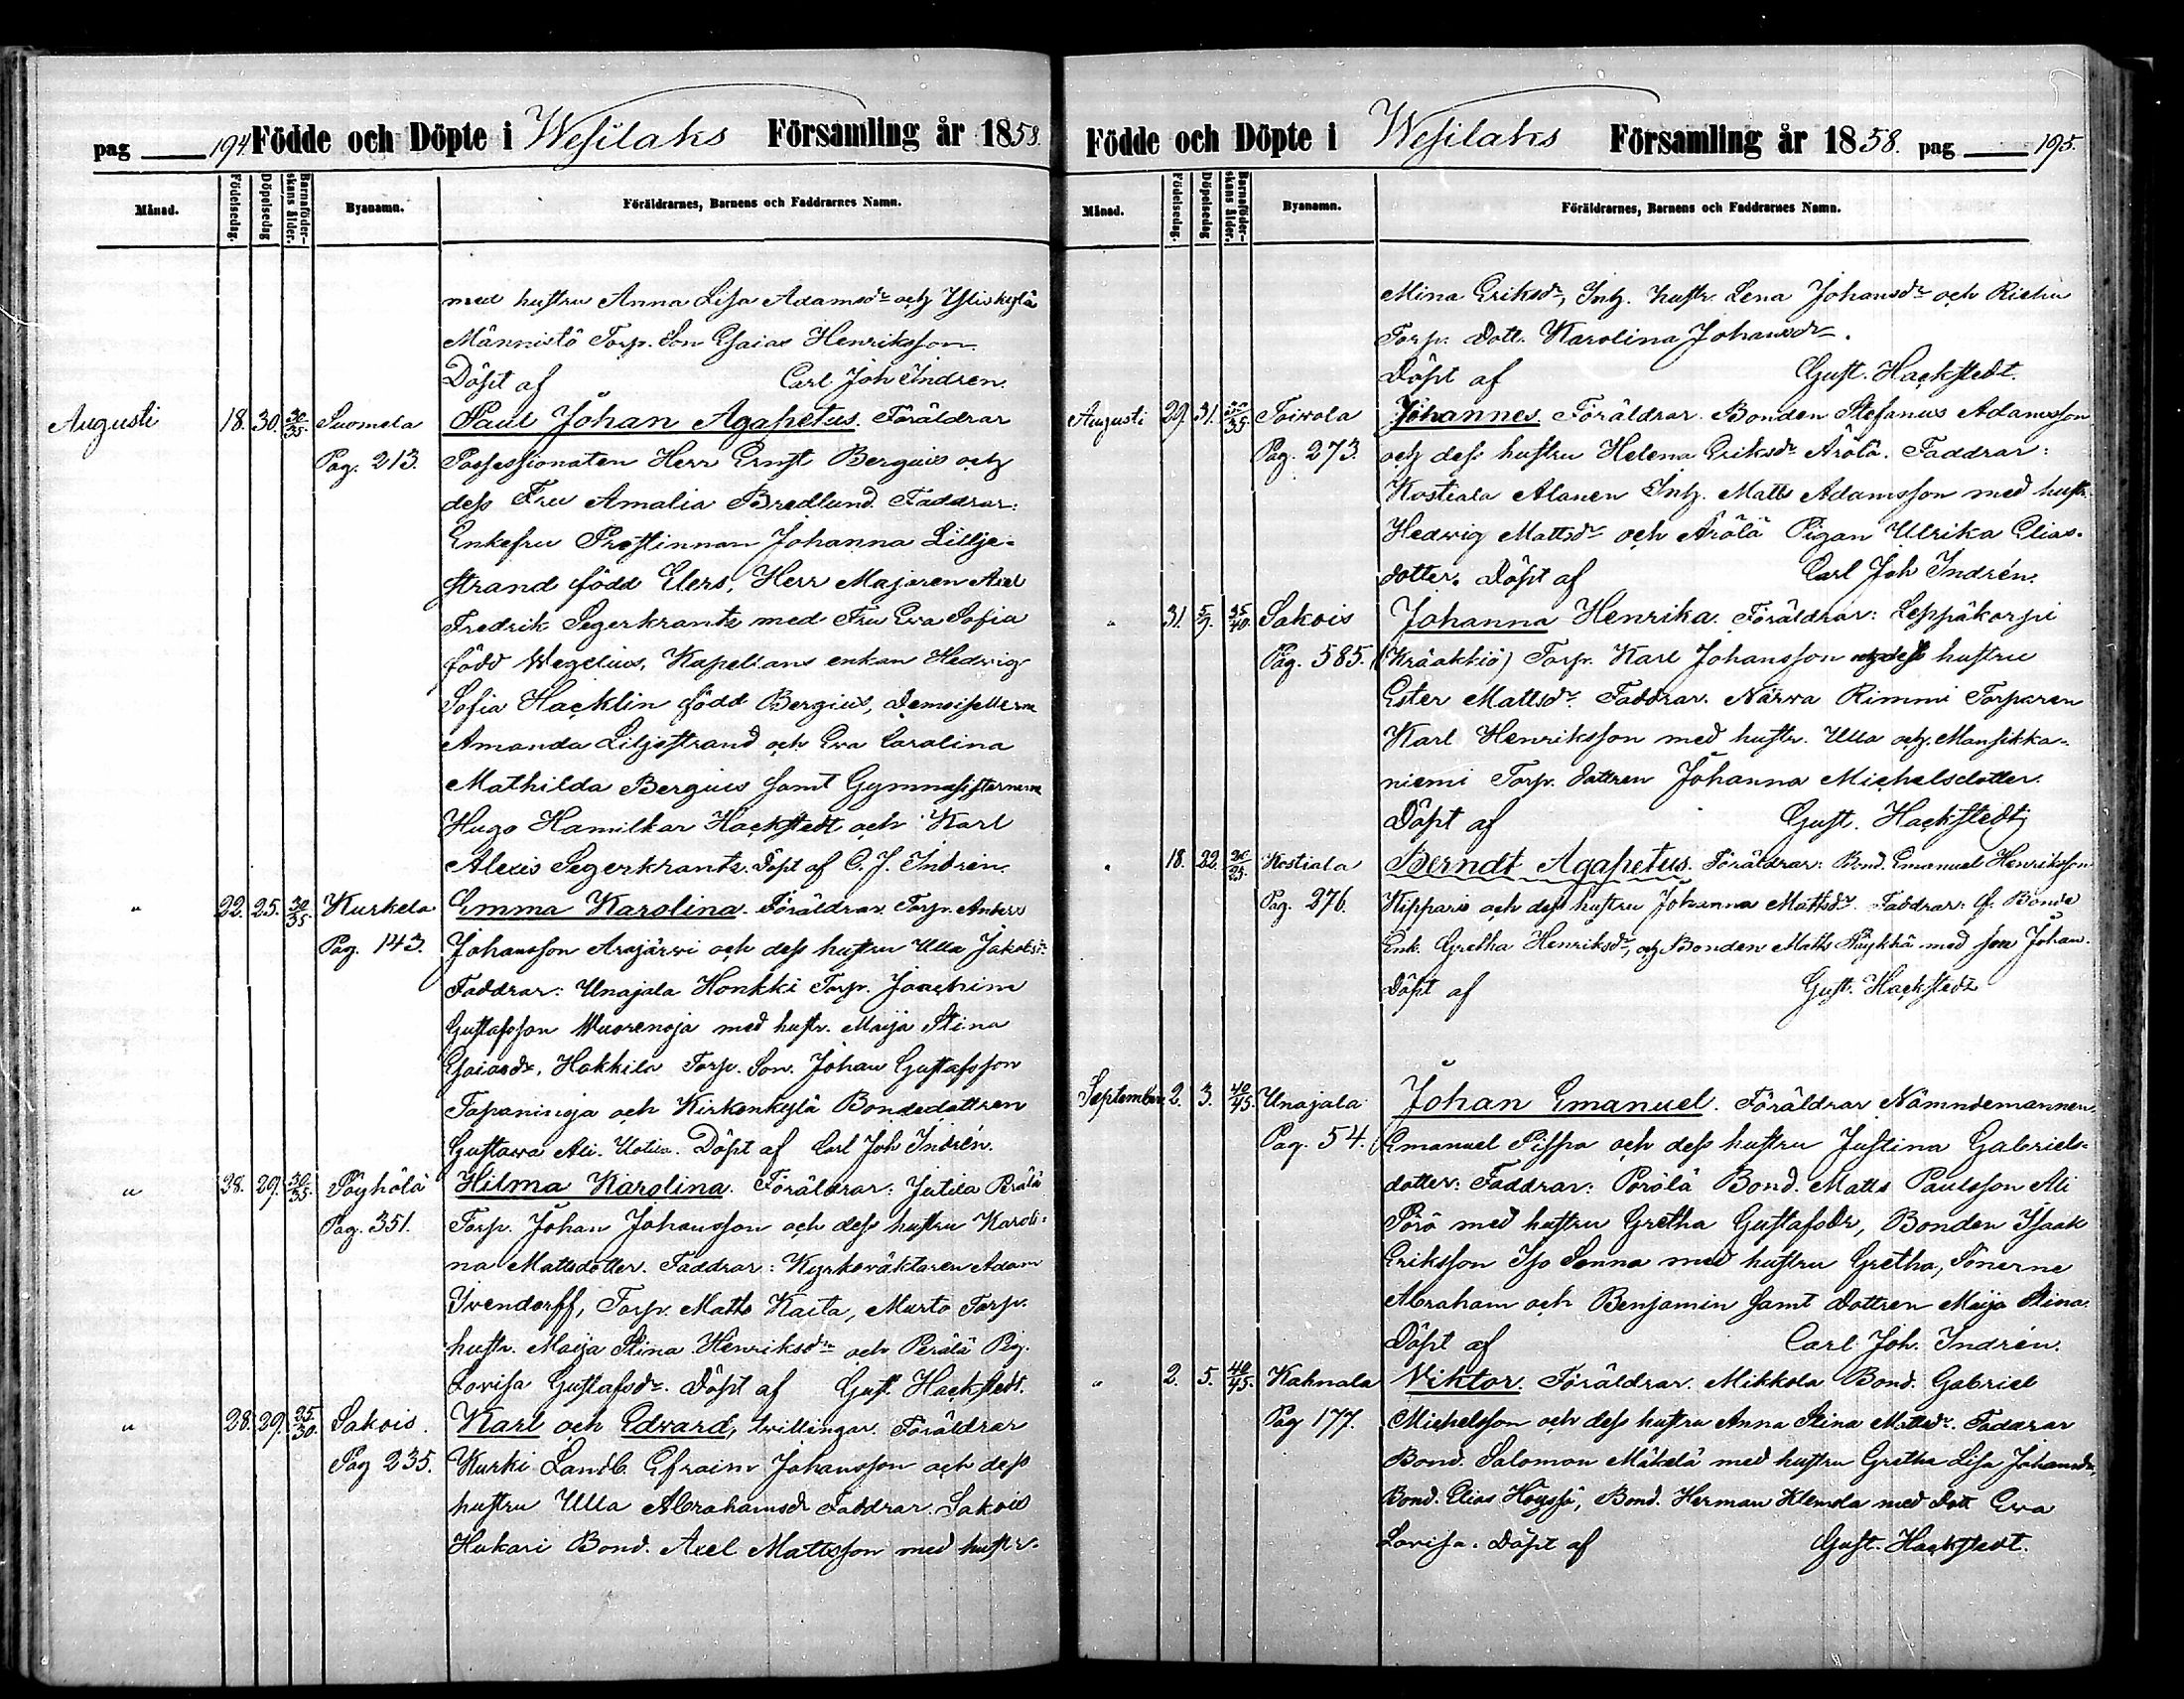 pag 194 Födde och Döpte i Wesilaks Församling år 1858.
Månad. Födelsedag. Döpelsedag Barnaföderskans ålder. Byanamn. Föräldrarnes, Barnens och Faddrarnes Namn.
med hustru Anna Lisa Adamsdr och Yliskylä
Männistö Torp. Son Esaias Henriksson.
Döpt af Carl Joh Indren.
Augusti 18. 30. 30/35. Suomela Paul Johan Agapetus. Föräldrar
Pag. 213. Possessionaten Herr Ernst Bergius och
dess Fru Amalia Bredlund. Faddrar:
Enkefru Prostinnan Johanna Lillje-
strand född Elers, Herr Majoren Axel
Fredrik Segerkrantz med Fru Eva Sofia
född Wegelius, Kapellans enkan Hedvig
Sofia Hacklin född Bergius, Demoisellerna
Amanda Liljestrand och Eva Carolina
Mathilda Bergius samt Gymnasisterna
Hugo Hamilkar Hackstedt och Karl
Alexis Segerkrantz. Döpt af C. J. Indrén.
" 22. 25. 30/35 Kurkela Emma Karolina. Föräldrar Torp. Anders
Pag. 143. Johansson Arajärwi och dess hustru Ulla Jakobsdr
Faddrar: Unajala Honkki Torp. Joachim
Gustafsson Wuorenoja med hustr. Maija Stina
Esaiasdr, Hakkila Torp. Son. Johan Gustafsson
Tapaninoja och Kirkonkylä Bondedottren
Gustawa Ali. Uotila. Döpt af Carl Joh Indrén.
" 28. 29. 30/35. Pöyhölä Hilma Karolina. Föräldrar: Jutila Perälä
Pag. 351. Torp. Johan Johansson och dess hustru Karoli-
na Mattsdotter. Faddrar: Kyrkoväktaren Adam
Ivendorff, Torp. Matts Kaita, Murto Torp.
hustr. Maija Stina Henriksdr och Perälä Pig.
Lovisa Gustafsdr. Döpt af Gust. Hackstedt.
" 28. 29. 25/30. Sakois. Karl och Edvard, twillingar. Föräldrar
Pag 235. Kurki Landb. Efraim Johansson och dess
hustru Ulla Abrahamsdr Faddrar. Sakois
Hukari Bond. Axel Mattsson med hustr.
Födde och Döpte i Wesilaks Församling år 1858. pag 195.
Månad. Födelsedag. Döpelsedag Barnaföderskans ålder. Byanamn. Föräldrarnes, Barnens och Faddrarnes Namn.
Mina Eriksdr, Inh. hustr. Lena Johansdr och
Torp. Dott. Karolina Johansdr.
Döpt af Gust. Hackstedt.
Augusti 29. 31. 30/35. Toivola Johannes. Föräldrar. Bonden Stefanus Adamsson
Pag. 273. och dess hustru Helena Eriksdr Arölä. Faddrar:
Kostiala Alanen Inh. Matts Adamsson med hustr.
Hedwig Mattsdr och Arölä Pigan Ulrika Elias-
dotter. Döpt af Carl Joh Indrén.
" 31. 5/9. 35/40. Sakois Johanna Henrika. Föräldrar: Leppäkorpi
Pag. 585. (Krääkkiö) Torp. Karl Johansson och dess hustru
Ester Mattsdr. Faddrar. Närwa Rimmi Torparen
Karl Henriksson med hustr. Ulla och Mansikka-
niemi Torp. dottren Johanna Michelsdotter.
Döpt af Gust. Hackstedt
" 18. 22. 20/25. Kostiala Berndt Agapetus. Föräldrar: Bond. Emanuel Henriksson
Pag. 276. Kippari och dess hustru Johanna Mattsdr. Faddrar: f. Bonde
Enk. Gretha Henriksdr, och Bonden Matts med son Johan.
Döpt af Gust. Hackstedt
September 2. 3. 40/45. Unajala Johan Emanuel. Föräldrar Nämndemannen
Pag. 54. Emanuel Pispa och dess hustru Justina Gabriels-
dotter: Faddrar: Pörölä Bond. Matts Paulsson Ali
Pörö med hustru Gretha Gustafsdr, Bonden Isaak
Eriksson Iso Sonna med hustru Gretha, Sönerne
Abraham och Benjamin samt dottren Maija Stina.
Döpt af Carl Joh. Indrén.
" 2. 5. 40/45. Kahnala Viktor. Föräldrar. Mikkola Bond. Gabriel
Pag 177. Michelsson och dess hustru Anna Stina Mattsdr. Faddrar
Bond. Salomon Mäkelä med hustru Gretha Lisa Johansdr,
Bond. Elias Höyssä, Bond. Herman Klemola med Dott Eva
Lovisa. Döpt af Gust. Hackstedt.